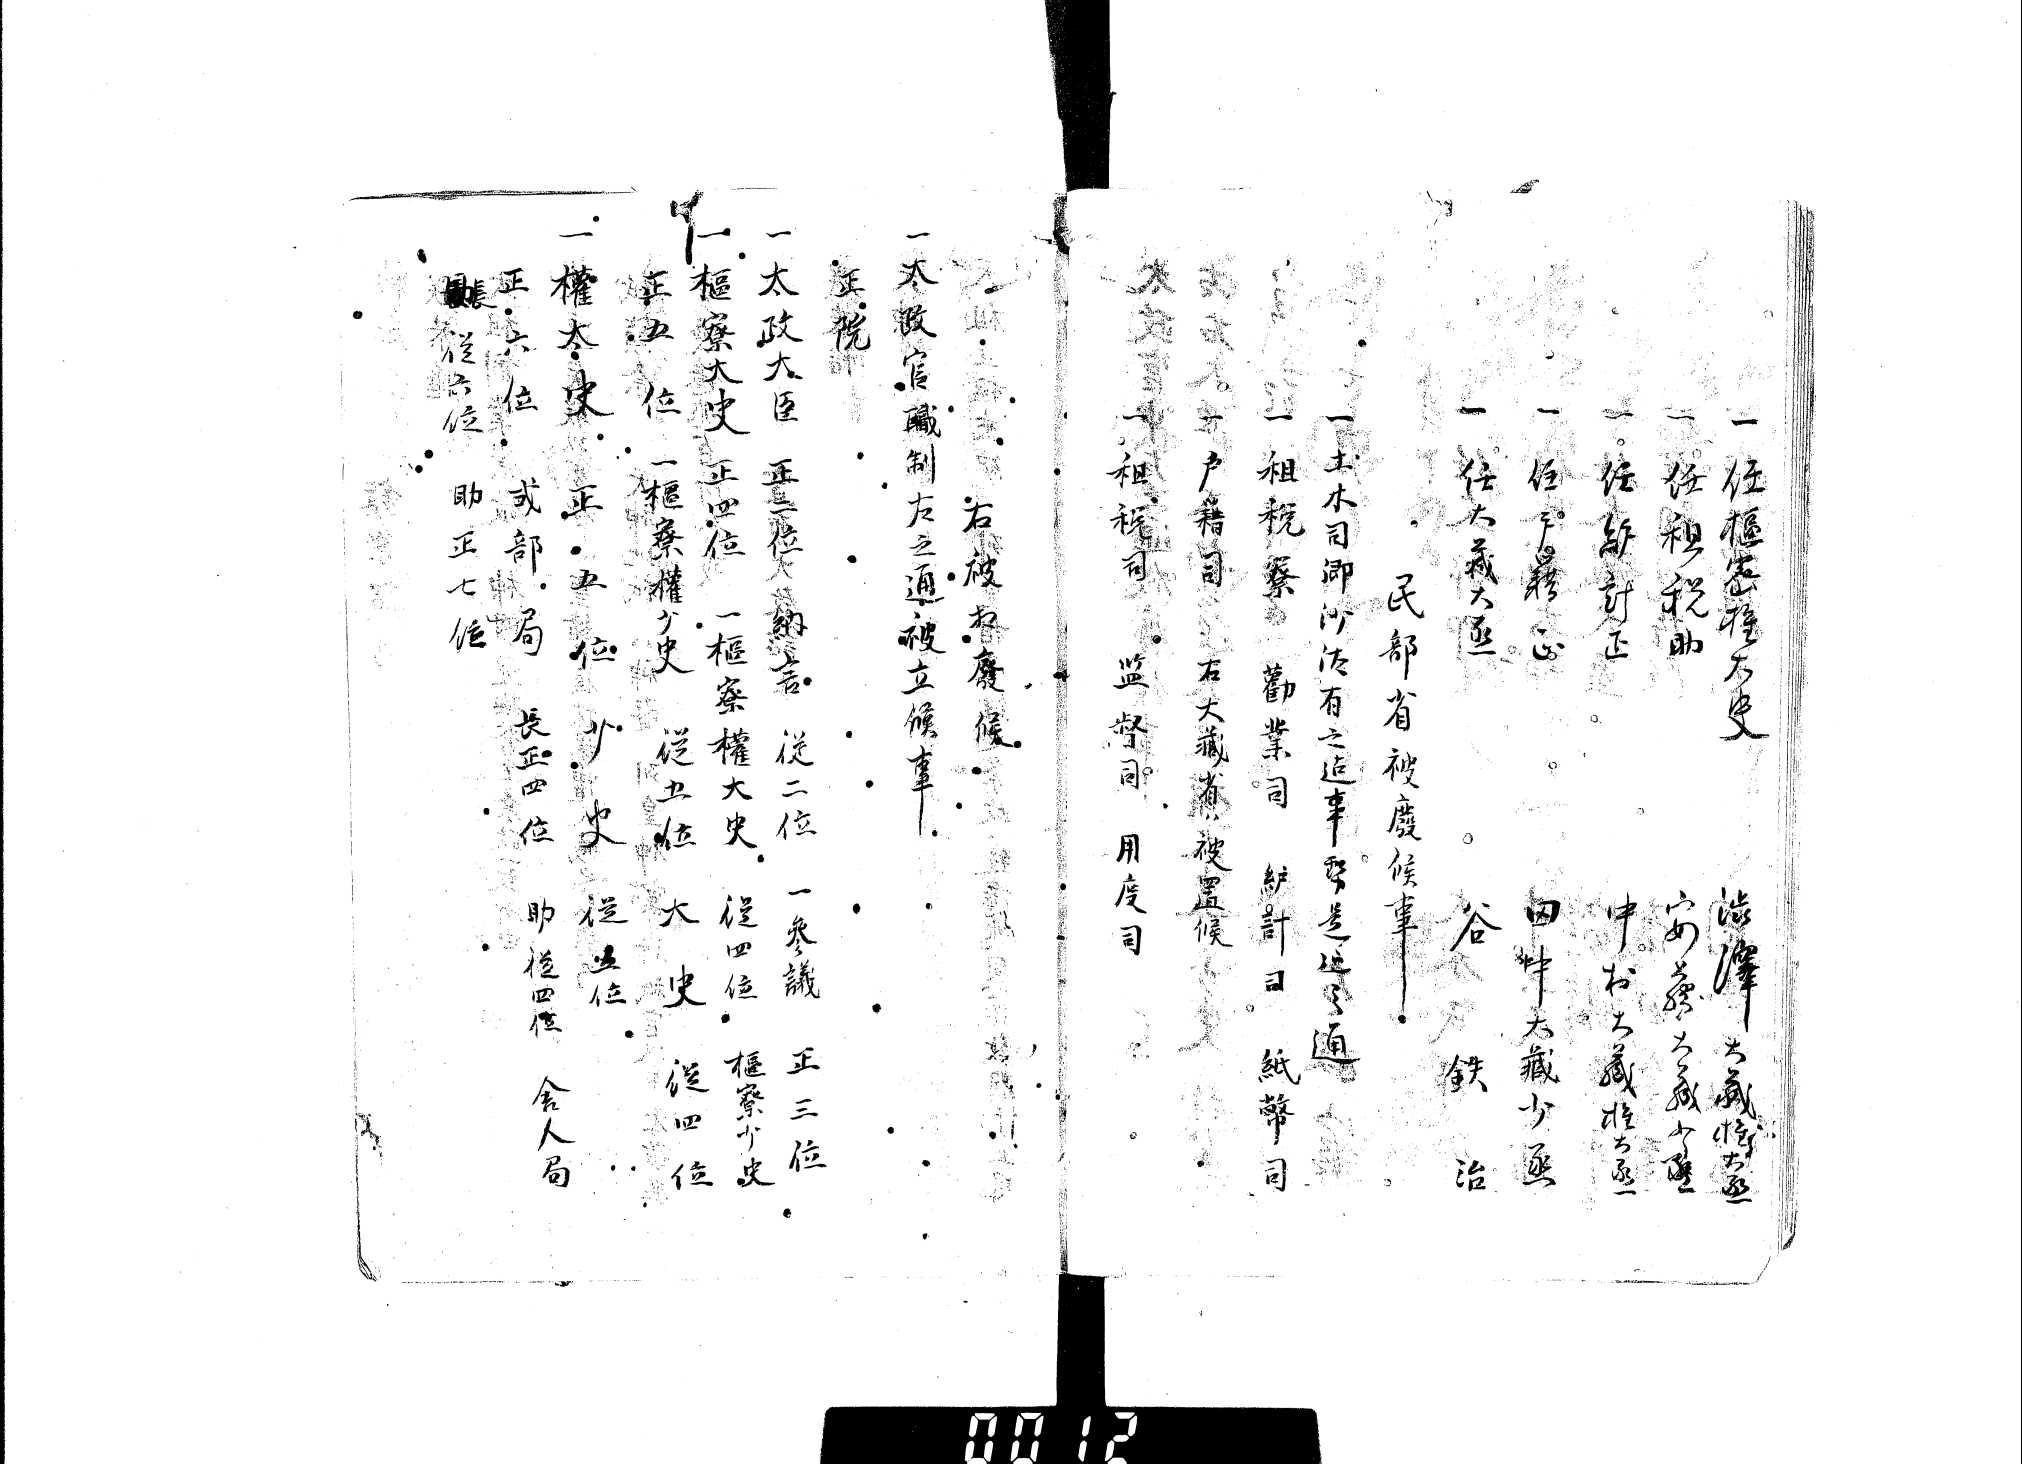 一 任樞密権大史 澁澤大蔵権大丞
一 任租税助 安藤大蔵少丞
一 任紗計正 中村大蔵権大丞
一 任戸籍正 田中大蔵少丞
一 任大藏大丞 谷 鉄 治
民部省被廢候事
一土木司御沙汰有之迄事務是迄之通
一租税寮 勸業司 紗計司 紙幣司
一戸籍司 右大藏省被置候
一租税司 監督司 用度司
右被相廢候
一太政官職制左之通被立候事
正院
一太政大臣 正二位 大納言 従二位 一參議 正三位
一樞寮大史 正四位 一樞寮權大史 従四位 樞寮少史
正五位 一樞寮權少史 従五位 大史 従四位
一權大史 正五位 少史 従五位
正六位 或部局 長正四位 助従四位 舎人局
長 従六位 助正七位
0012